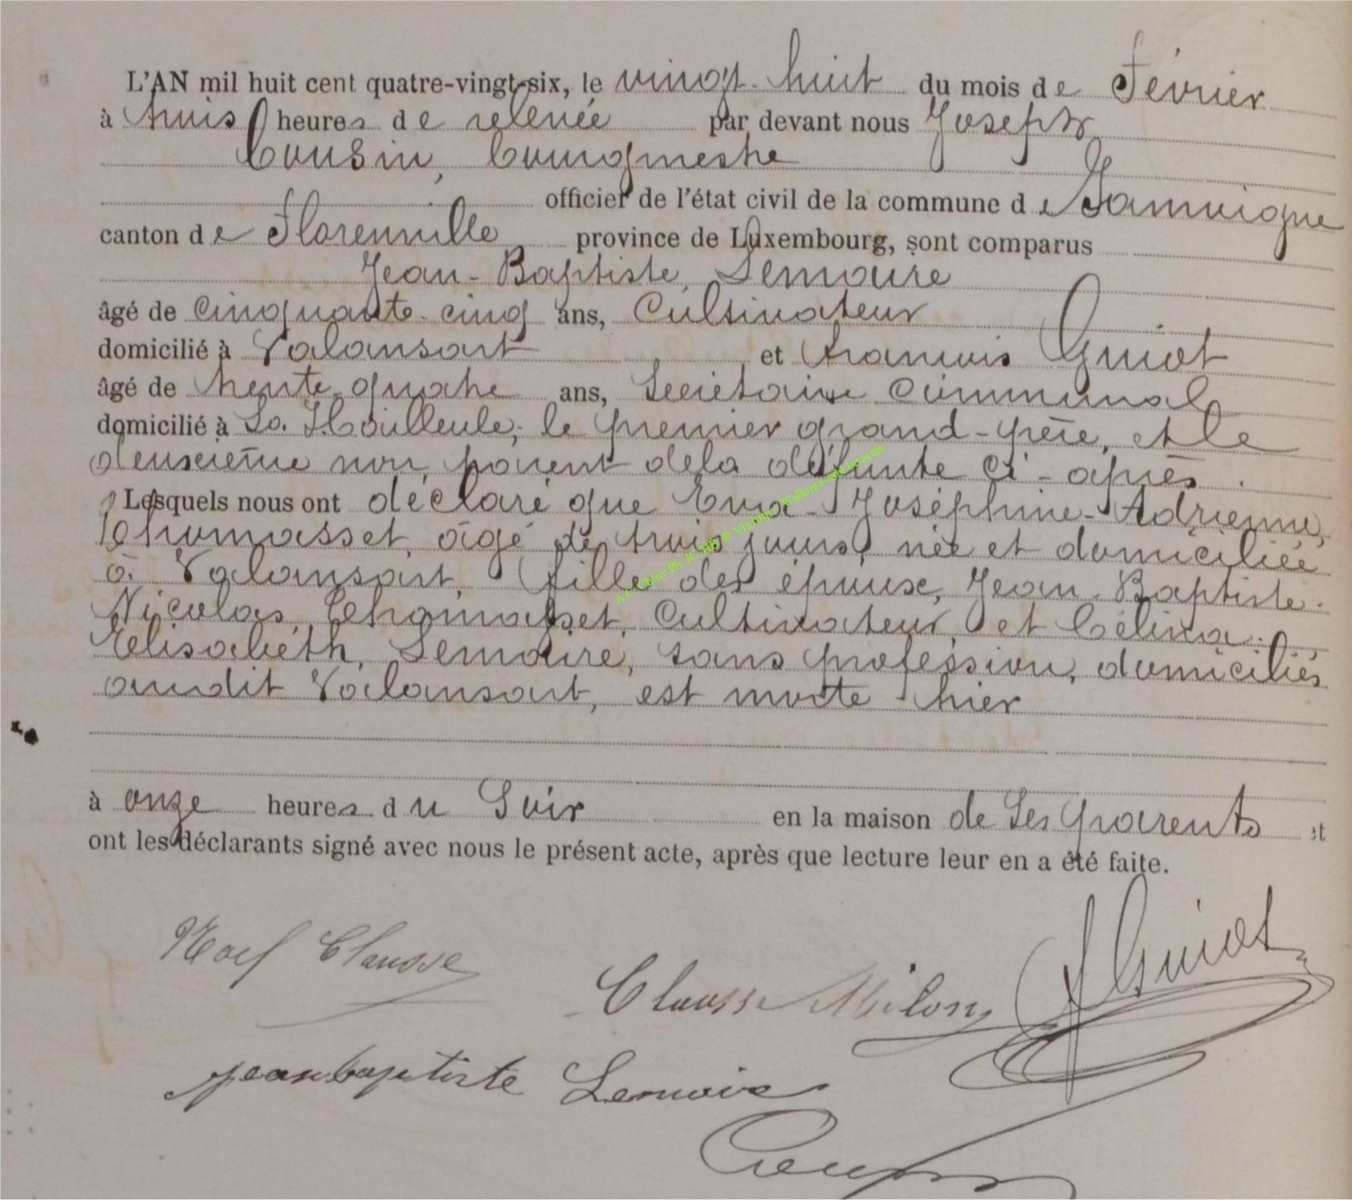 L'AN mil huit cent quatre-vingt-six, le vingt-huit du mois de Février
à trois heures de relevée par devant nous Joseph
Cousin, bourgmestre
officier de l'état civil de la commune de Jamoigne
canton de Florenville province de Luxembourg, sont comparus
Jean-Baptiste, Lemoire
âgé de cinquante-cinq ans, Cultivateur
domicilié à Valansart et François Guiot
âgé de trente quatre ans, Secrétaire Communal
domicilié à La Houlleule, le premier grand-père, et le
deuxième non parent de la défunte ci-après.
Lesquels nous ont déclaré que Ema-Joséphine-Adrienne,
Thomasset, âgé de trois jours, née et domiciliée
à Valansart, fille des époux, Jean-Baptiste-
Nicolas, Thomasset, Cultivateur, et Célina-
Elisabeth, Lemoire, sans profession, domiciliés
audit Valansart, est morte hier
à onze heures du Soir en la maison de Ses parents et
ont les déclarants signé avec nous le présent acte, après que lecture leur en a été faite.
Clausse
Clausse Milon
Guiot
jeanbaptiste Lemoire